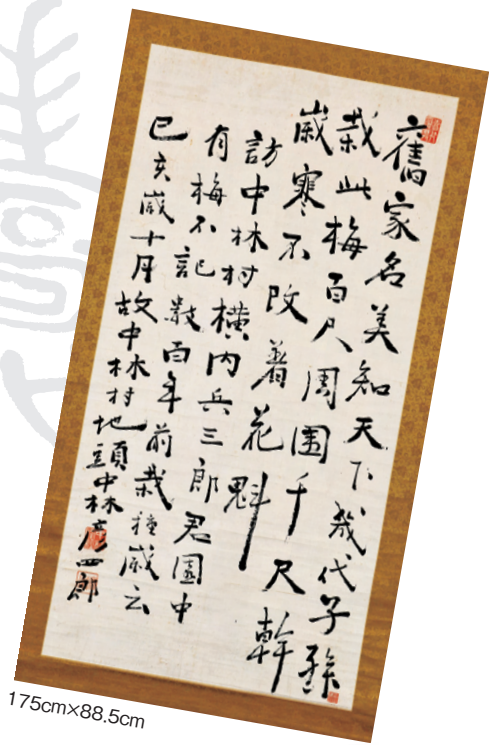 舊家名美知天下幾代子孫
栽此梅百尺周圍千尺幹
歳寒不改着花魁
訪中林村横内兵三郎君園中
有梅不記數百年前栽種歳云
己亥歳十月故中林村地頭中林彦四郎
175cm×88.5cm